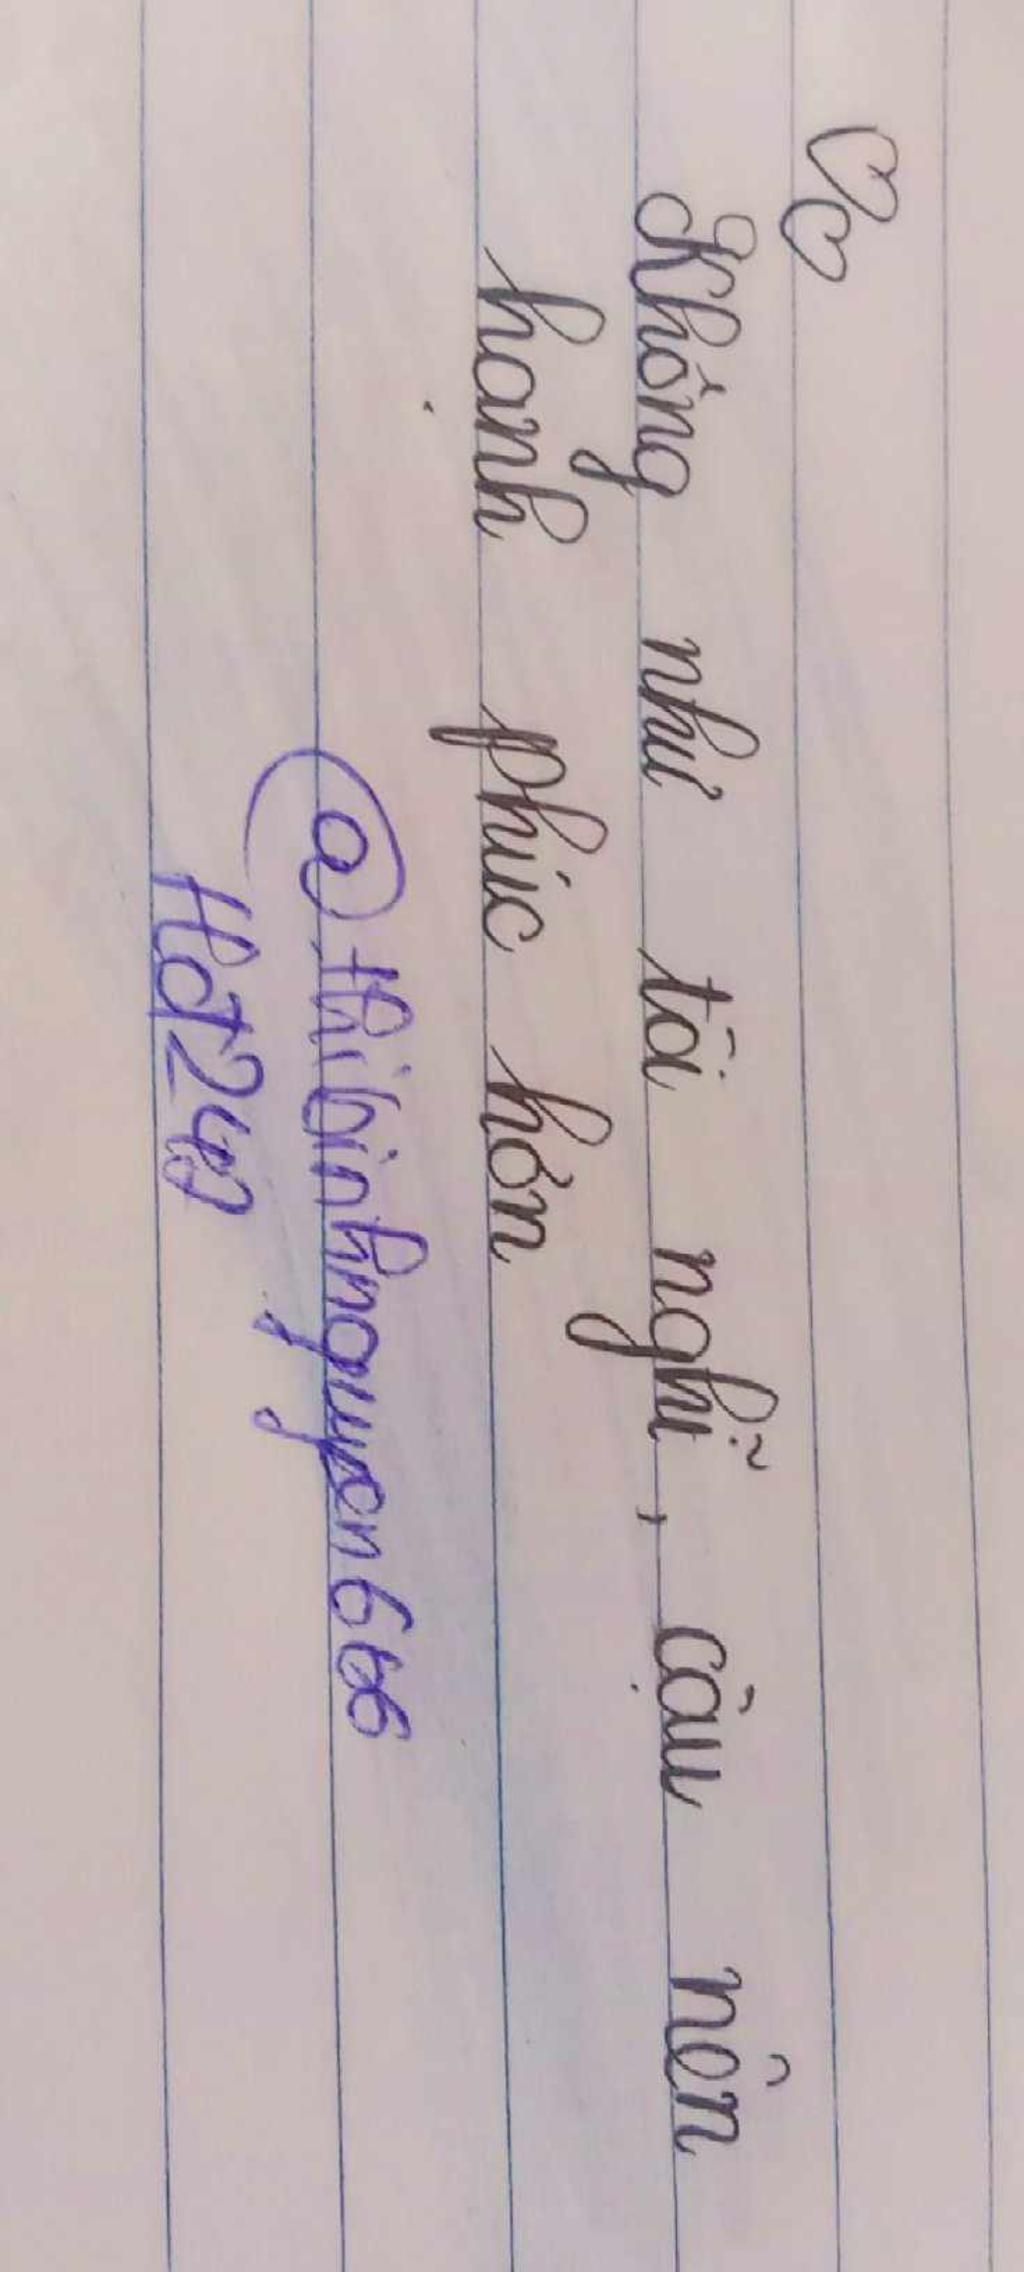 Không như tôi nghĩ, câu nên
hạnh phúc hơn
@thibinhnguyen666